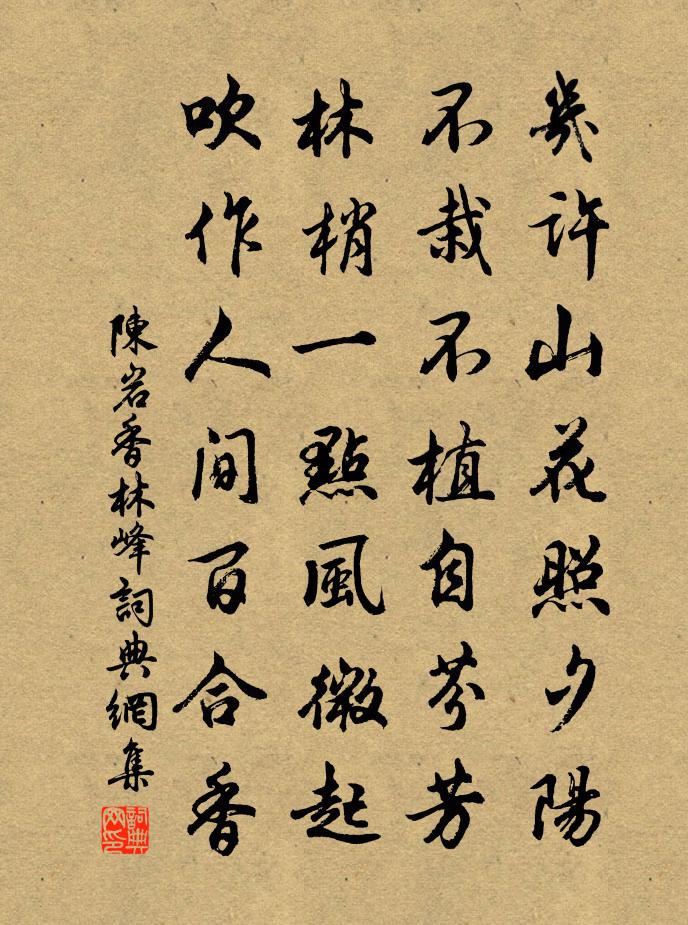 幾許山花照夕陽
不栽不植自芬芳
林梢一點風微起
吹作人間百合香
陳岩香林峰詞典網集
詞典網印